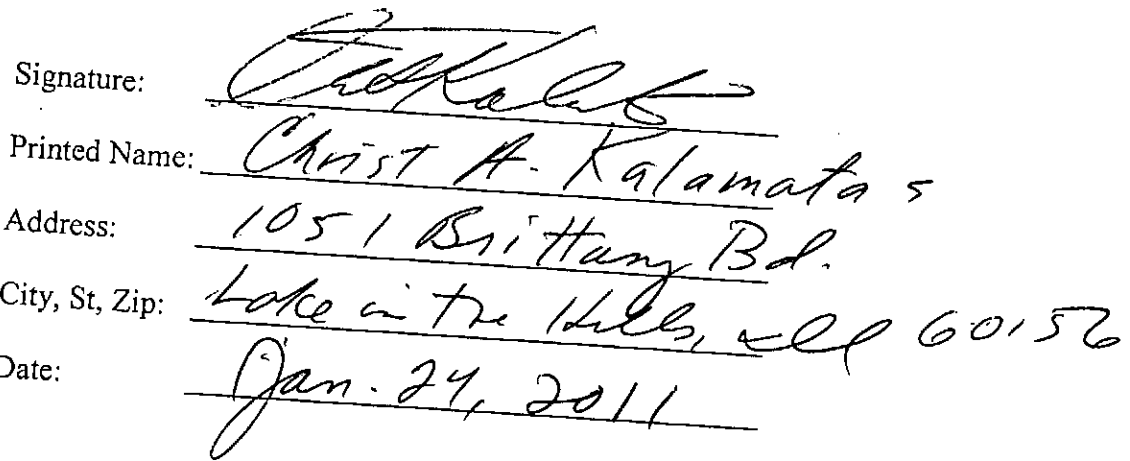 Signature:
Printed Name: Christ A. Kalamatas
Address: 1051 Brittany Bd.
City, St, Zip: Lake in The Hills, Ill 60156
Date: Jan. 24, 2011